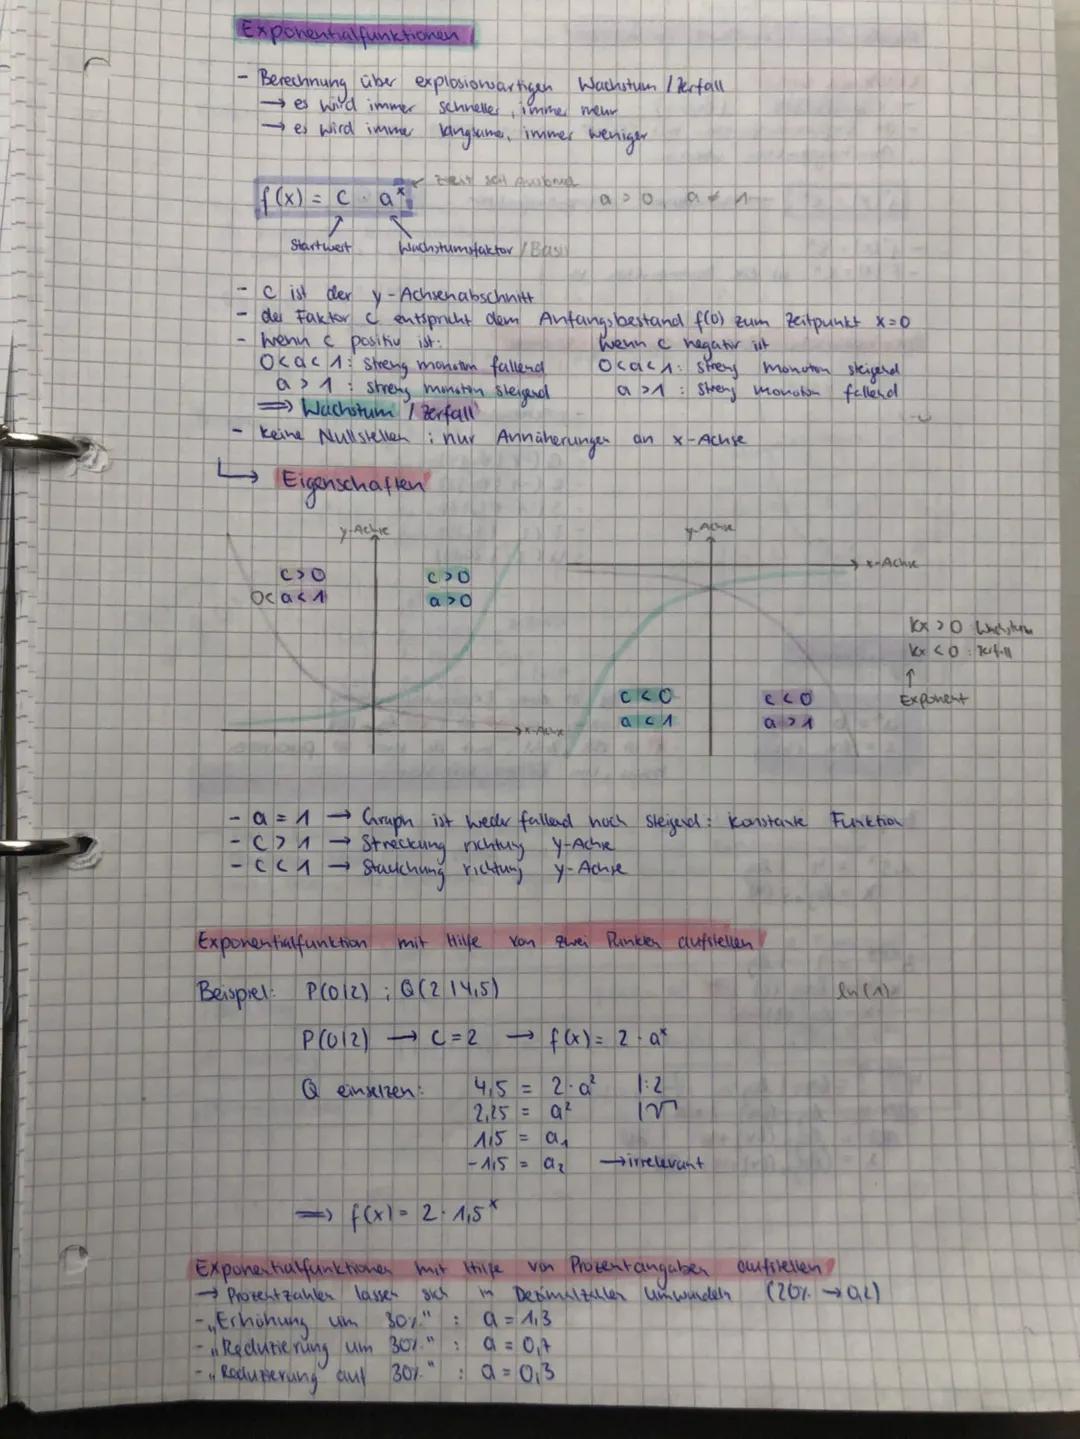 Exponentialfunktionen
- Berechnung über explosionsartigen Wachstum / Zerfall
→ es wird immer schneller, immer mehr
→ es wird immer langsamer, immer weniger
Zeit seit Ausbruch
f(x) = c · aˣ a > 0, a ≠ 1
Startwert Wachstumsfaktor / Basis
- c ist der y-Achsenabschnitt
- der Faktor c entspricht dem Anfangsbestand f(0) zum Zeitpunkt x=0
- wenn c positiv ist: wenn c negativ ist
0<a<1: streng monoton fallend 0<a<1: streng monoton steigend
a > 1 : streng monoton steigend a >1 : streng monoton fallend
⇒ Wachstum / Zerfall
- keine Nullstellen ; nur Annäherungen an x-Achse
↳ Eigenschaften
y-Achse y-Achse
x-Achse
c>0 c>0
0< a<1 a>0
kx > 0 Wachstum
kx < 0 : Zerfall
↑
Exponent
c<0 c<0
a<1 a>1
x-Achse
- a = 1 → Graph ist weder fallend noch steigend: konstante Funktion
- c > 1 → Streckung richtung y-Achse
- c < 1 → Stauchung richtung y-Achse
Exponentialfunktion mit Hilfe von zwei Punkten aufstellen
Beispiel: P(0|2) ; Q(2|4,5) ln(1)
P(0|2) → c=2 → f(x) = 2 · aˣ
Q einsetzen: 4,5 = 2·a² |:2
2,25 = a² |√
1,5 = a₁
-1,5 = a₂ → irrelevant
⇒ f(x) = 2 · 1,5ˣ
Exponentialfunktionen mit Hilfe von Prozentangaben aufstellen
→ Prozentzahlen lassen sich in Dezimalzahlen umwandeln (20% → 0,2)
- „Erhöhung um 30%" : a = 1,3
- „Reduzierung um 30%" : a = 0,7
- „Reduzierung auf 30%" : a = 0,3